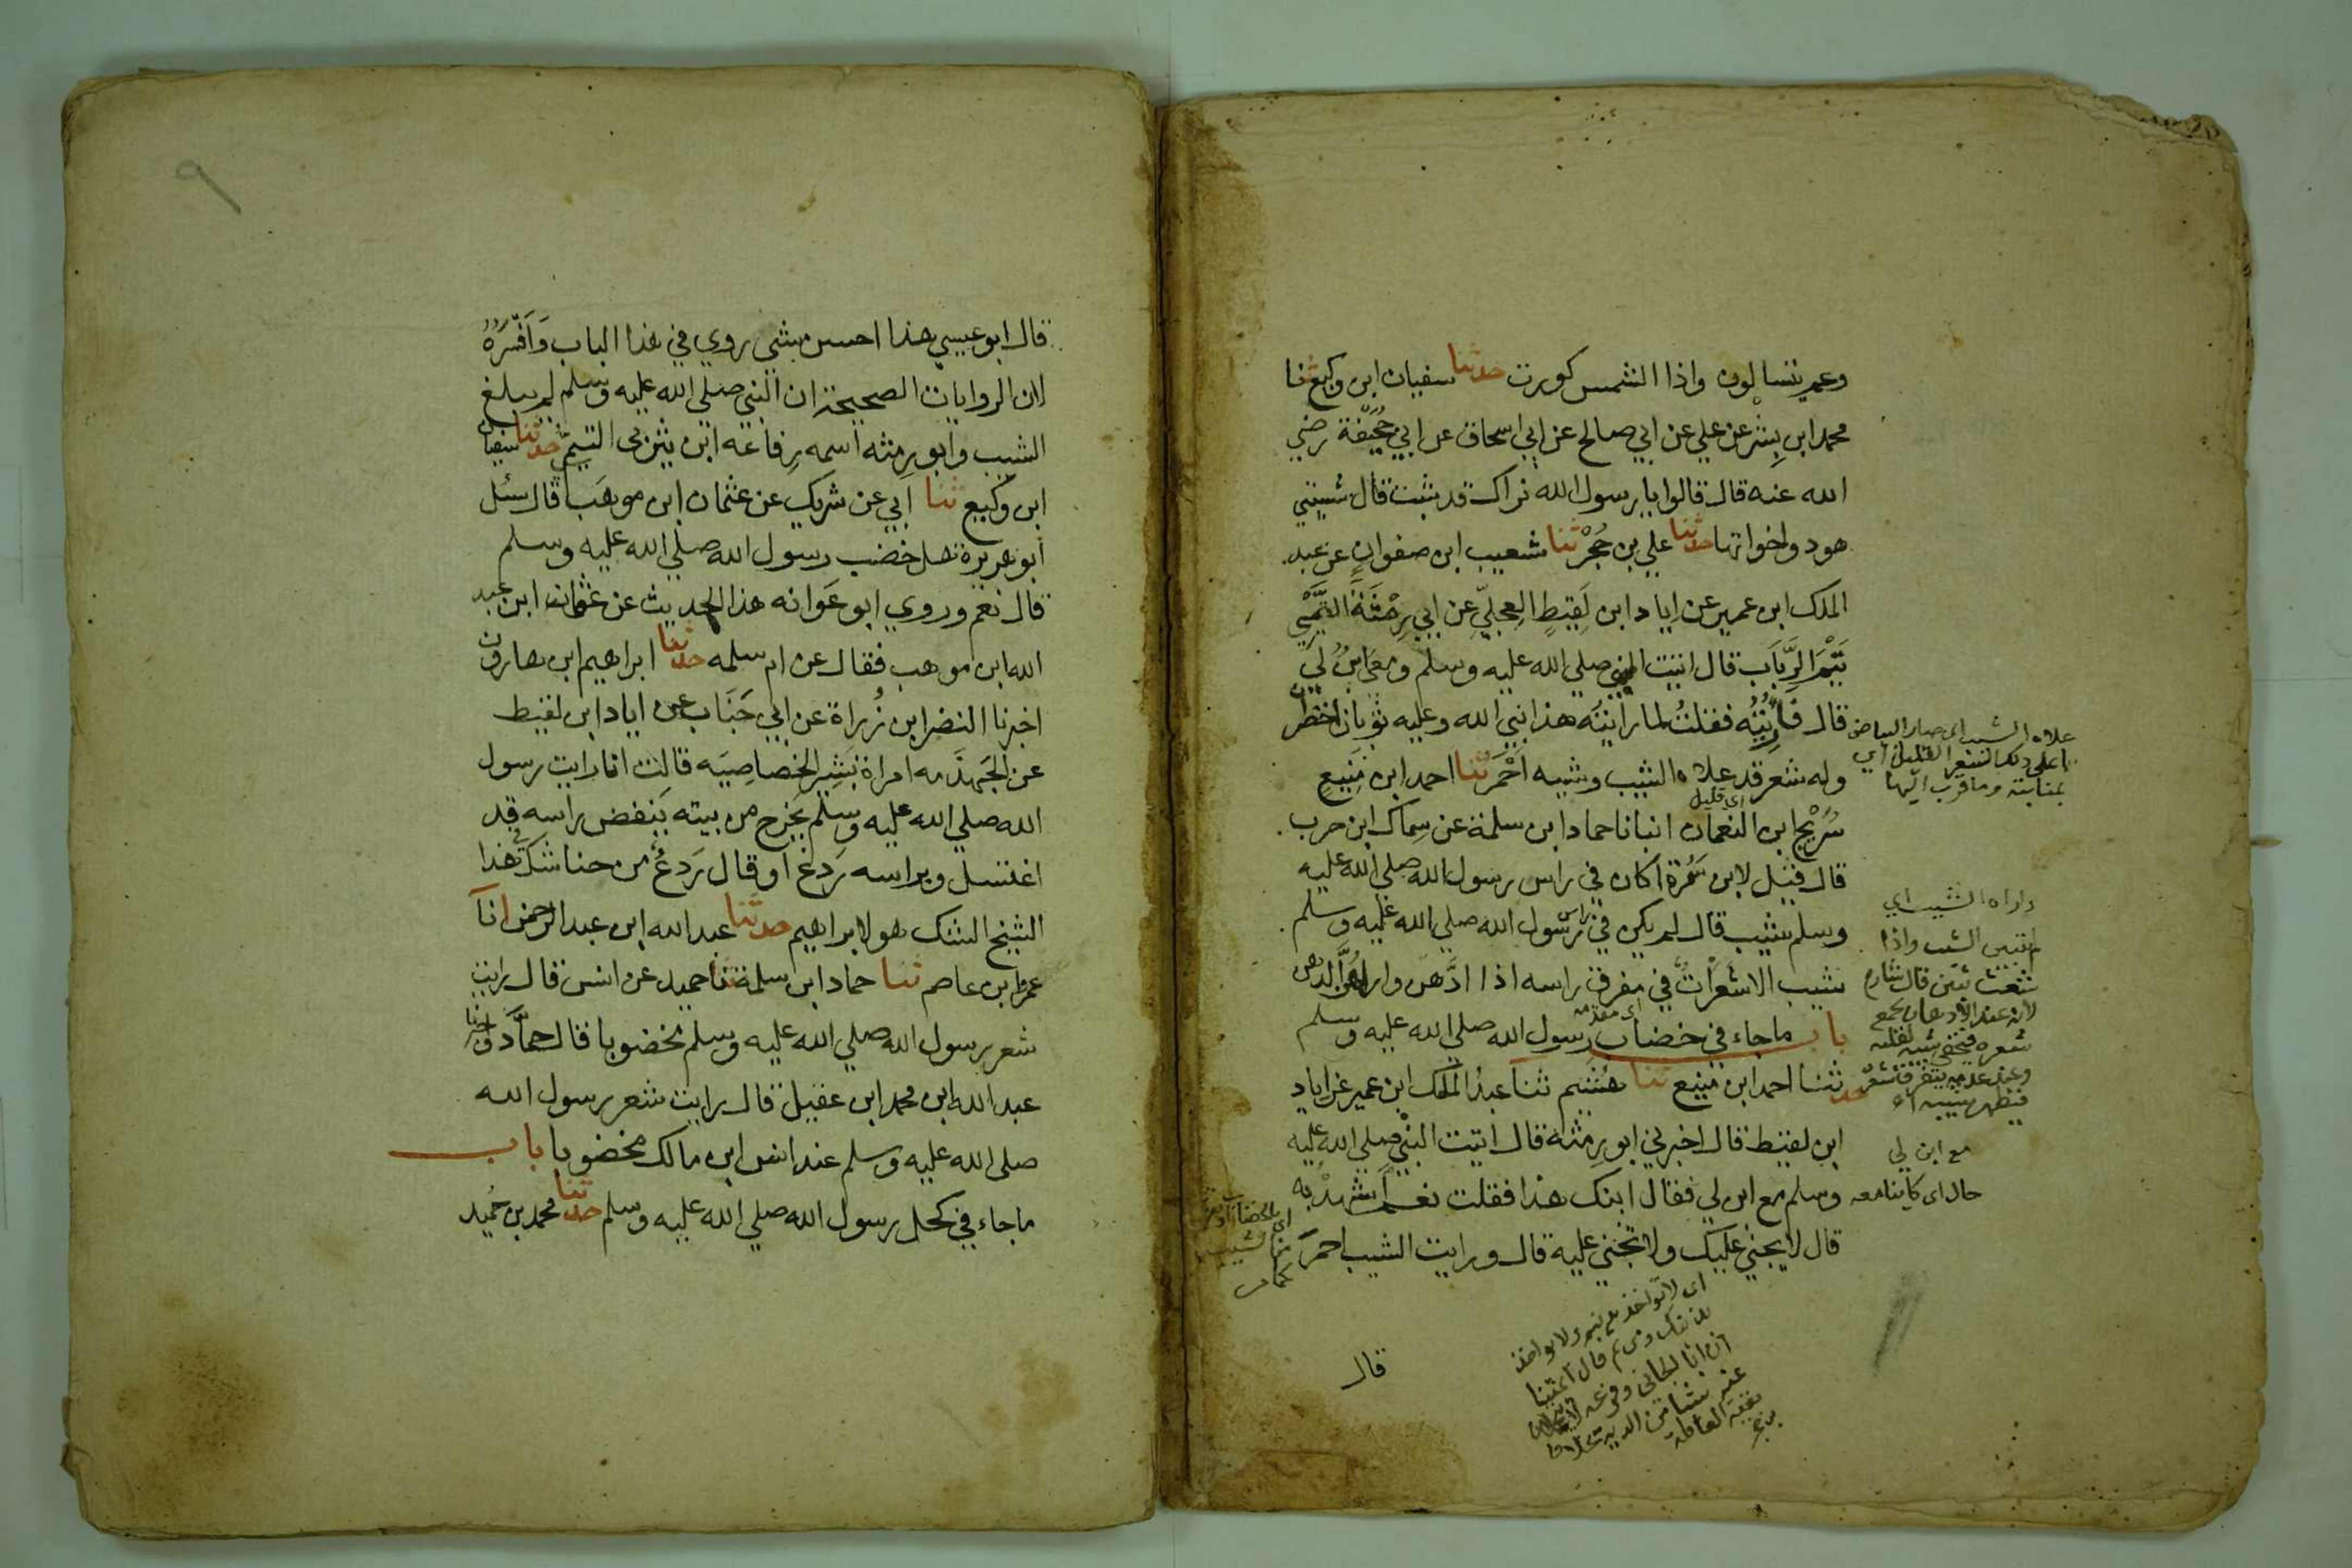 وعم يتسالون واذا الشمس كورت حدثنا سفيان ابن وكيع ثنا
محمد ابن بِشْر عن علي عن ابي صالح عن ابي اسحاق عن ابي جُحَيْفَة رضي
الله عنه قال قالوا يا رسول الله نراك قد شبت قال شيبتني
هود واخواتها حدثنا علي بن حُجْر ثنا شعيب ابن صفوان عن عبد
الملك ابن عمير عن اياد ابن لَقِيطٍ العِجليّ عن ابي رِمْثَةَ التَّيْمِي
تَيْمَ الرِّبَاب قال اتيت النبي صلي الله عليه وسلم ومعي ابنٌ لي
قال فَأُرِيْتُه فقلتُ لما رايتُه هذا نبي الله وعليه ثوبان اخضران
وله شعر قد علاه الشيب وشيبه اَحْمَر ثنا احمد ابن مَنِيعٍ
اي قليل
سُرَيْج ابن النعمان انبانا حماد ابن سلمة عن سِماك ابن حرب
قال قيل لابن سَمُرة اكان في راس رسول الله صلي الله عليه
وسلم شيب قال لم يكن في راس رسول الله صلي الله عليه وسلم
شيب الا شَعَرَاتٌ في مفرق راسه اذا ادَّهَن واراهُنَّ الدهن
اي مقدمه
باب ما جاء في خضاب رسول الله صلي الله عليه وسلم
حدثنا احمد ابن منيع ثنا هُشَيم ثنا عبدُ الملك ابن عمير عن اياد
ابن لقيط قال اخبرني ابو رِمثة قال اتيت النبي صلي الله عليه
وسلم مع ابن لي فقال ابنك هذا فقلت نعم اَشهدْ به
قال لا يجني عليك ولا تجني عليه قال ورايت الشيب احمرَ
قال
علاه الشيب اي صار البياض
باعلي ذلك الشعر القليل اي
بمنابته وما قرب اليها
واراه الشيب اي
لم يتبين الشيب واذا
شعث تبين قال شارح
لان عند الادهان يجمع
شعره فيخفي شيبه لقلته
وعند عدمه يتفرق شعره
فيظهر شيبه اه
مع ابن لي
حال اي كاينا معه
اي لا تواخذ بذنبه ولا يواخذ
بذنبك ومن ثم قال ايمتنا
قال ابو عيسي هذا احسن شي روي في هذا الباب وَاَفْسَرُهُ
لان الروايات الصحيحة ان النبي صلي الله عليه وسلم لم يبلغ
الشيب وابو رِمثه اسمه رِفاعه ابن يثربى التيميّ حدثنا سفيان
ابن وكيع ثنا ابي عن شريك عن عثمان ابن موهَب قال سئل
ابو هريرة هل خضب رسول الله صلي الله عليه وسلم
قال نعم وروي ابو عَوانه هذا الحديث عن عثمان ابن عبد
الله ابن موهب فقال عن ام سلمه حدثنا ابراهيم ابن هارون
اخبرنا النضر ابن زُرارة عن ابي جَنَاب عن اياد ابن لقيط
عن الجَهذَمه امراة بَشِير الخصاصِيَه قالت انا رايت رسول
الله صلي الله عليه وسلم يخرج من بيته ينفض راسه قد
اغتسل وبراسه رَدغ او قال رَدعٌ من حنا شك في هذا
الشيخ الشك هو لابراهيم حدثنا عبد الله ابن عبد الرحمن انا
عمرو ابن عاصم ثنا حماد ابن سلمة ثنا حميد عن انس قال رايت
شعر رسول الله صلي الله عليه وسلم مخضوبا قال حمَّاد واخبرنا
عبد الله ابن محمد ابن عقيل قال رايت شعر رسول الله
صلي الله عليه وسلم عند انس ابن مالك مخضوبا باب
ما جاء في كحل رسول الله صلي الله عليه وسلم حدثنا محمد بن حُميد
٩